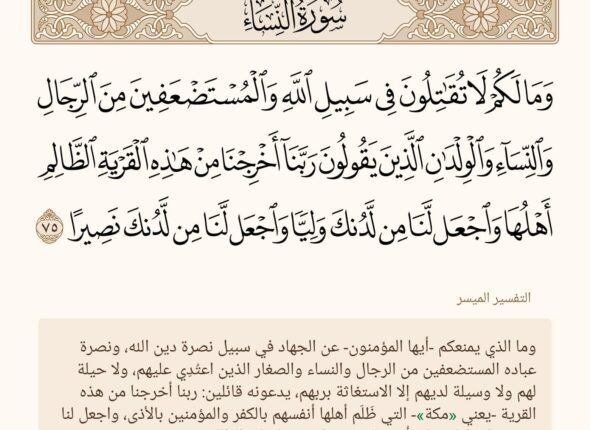 سُورَةُ النِّسَاءِ
وَمَا لَكُمْ لَا تُقَٰتِلُونَ فِى سَبِيلِ ٱللَّهِ وَٱلْمُسْتَضْعَفِينَ مِنَ ٱلرِّجَالِ
وَٱلنِّسَآءِ وَٱلْوِلْدَٰنِ ٱلَّذِينَ يَقُولُونَ رَبَّنَآ أَخْرِجْنَا مِنْ هَٰذِهِ ٱلْقَرْيَةِ ٱلظَّالِمِ
أَهْلُهَا وَٱجْعَل لَّنَا مِن لَّدُنكَ وَلِيًّا وَٱجْعَل لَّنَا مِن لَّدُنكَ نَصِيرًا ٧٥
التفسير الميسر
وما الذي يمنعكم -أيها المؤمنون- عن الجهاد في سبيل نصرة دين الله، ونصرة
عباده المستضعفين من الرجال والنساء والصغار الذين اعتُدِي عليهم، ولا حيلة
لهم ولا وسيلة لديهم إلا الاستغاثة بربهم، يدعونه قائلين: ربنا أخرجنا من هذه
القرية -يعني «مكة»- التي ظَلَم أهلها أنفسهم بالكفر والمؤمنين بالأذى، واجعل لنا